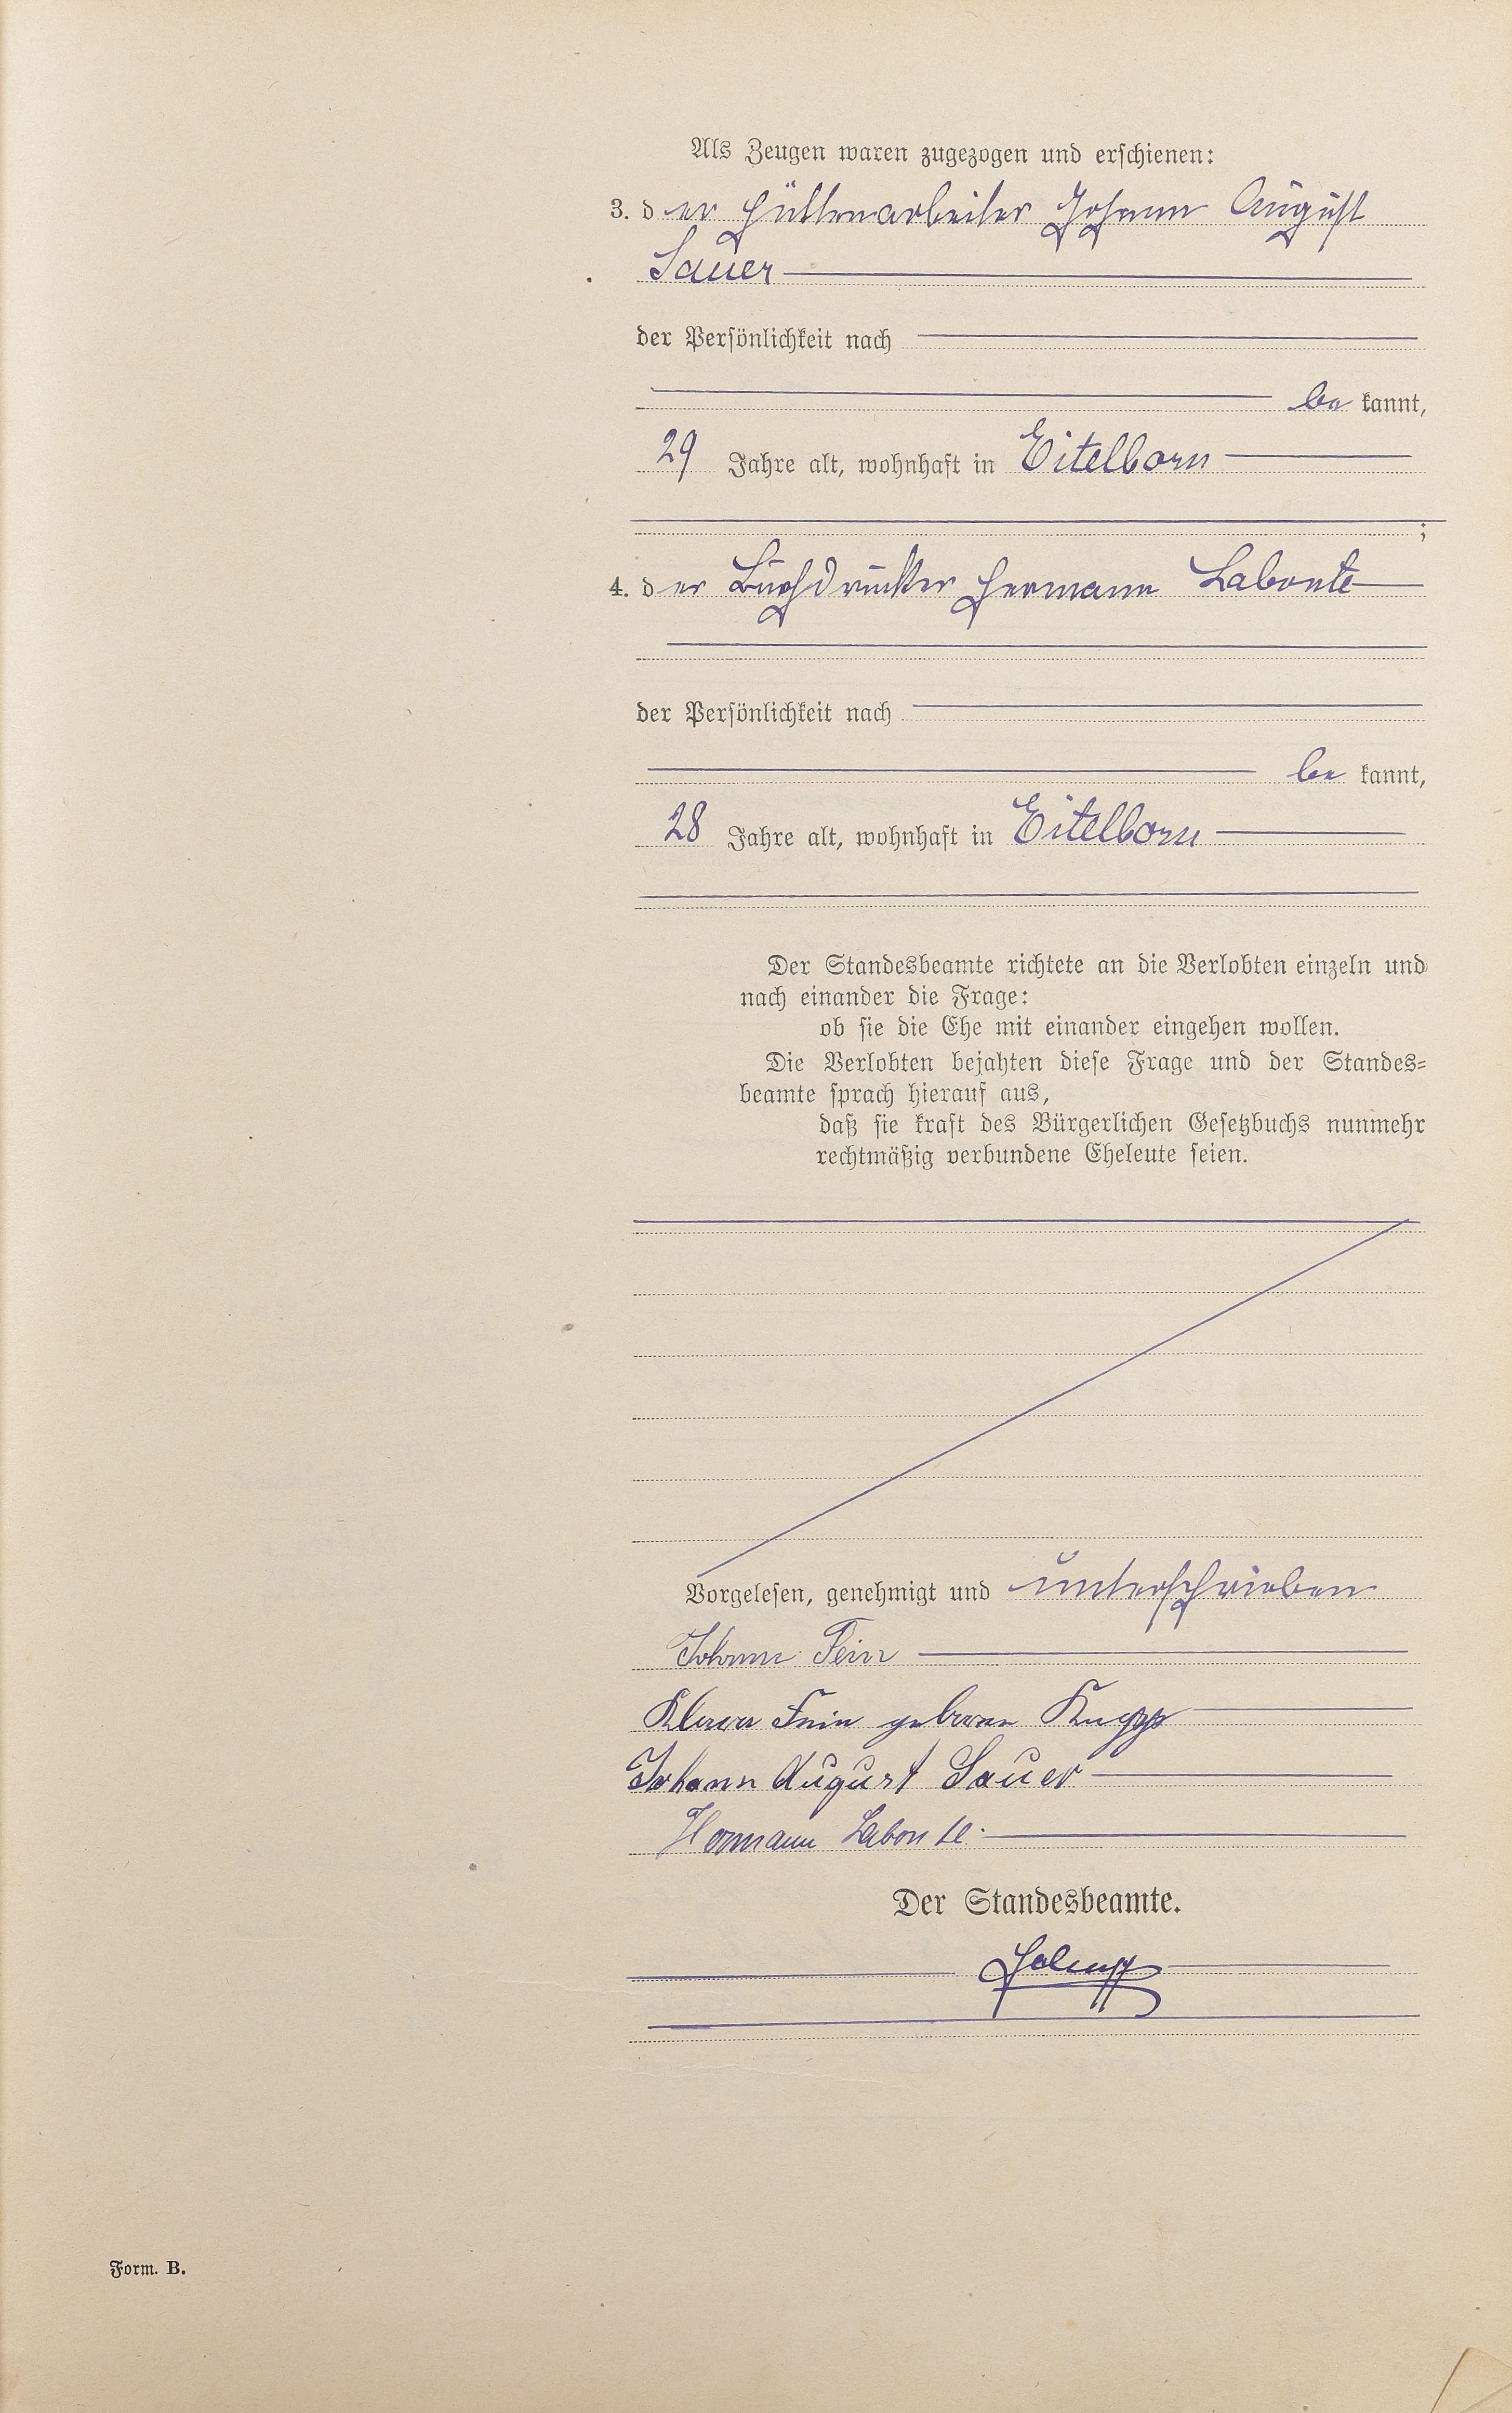 Als Zeugen waren zugezogen und erschienen:
3. der Hüttenarbeiter Johann August
Sauer
der Persönlichkeit nach
be kannt,
29 Jahre alt, wohnhaft in Eitelborn
;
4. der Buchdrucker Hermann Labonte
der Persönlichkeit nach
be kannt,
28 Jahre alt, wohnhaft in Eitelborn
Der Standesbeamte richtete an die Verlobten einzeln und
nach einander die Frage:
ob sie die Ehe mit einander eingehen wollen.
Die Verlobten bejahten diese Frage und der Standes=
beamte sprach hierauf aus,
daß sie kraft des Bürgerlichen Gesetzbuchs nunmehr
rechtmäßig verbundene Eheleute seien.
Vorgelesen, genehmigt und unterschrieben
Johann Fein
Fein geborene
Johann August Sauer
Hermann Labonte.
Der Standesbeamte.
Form. B.